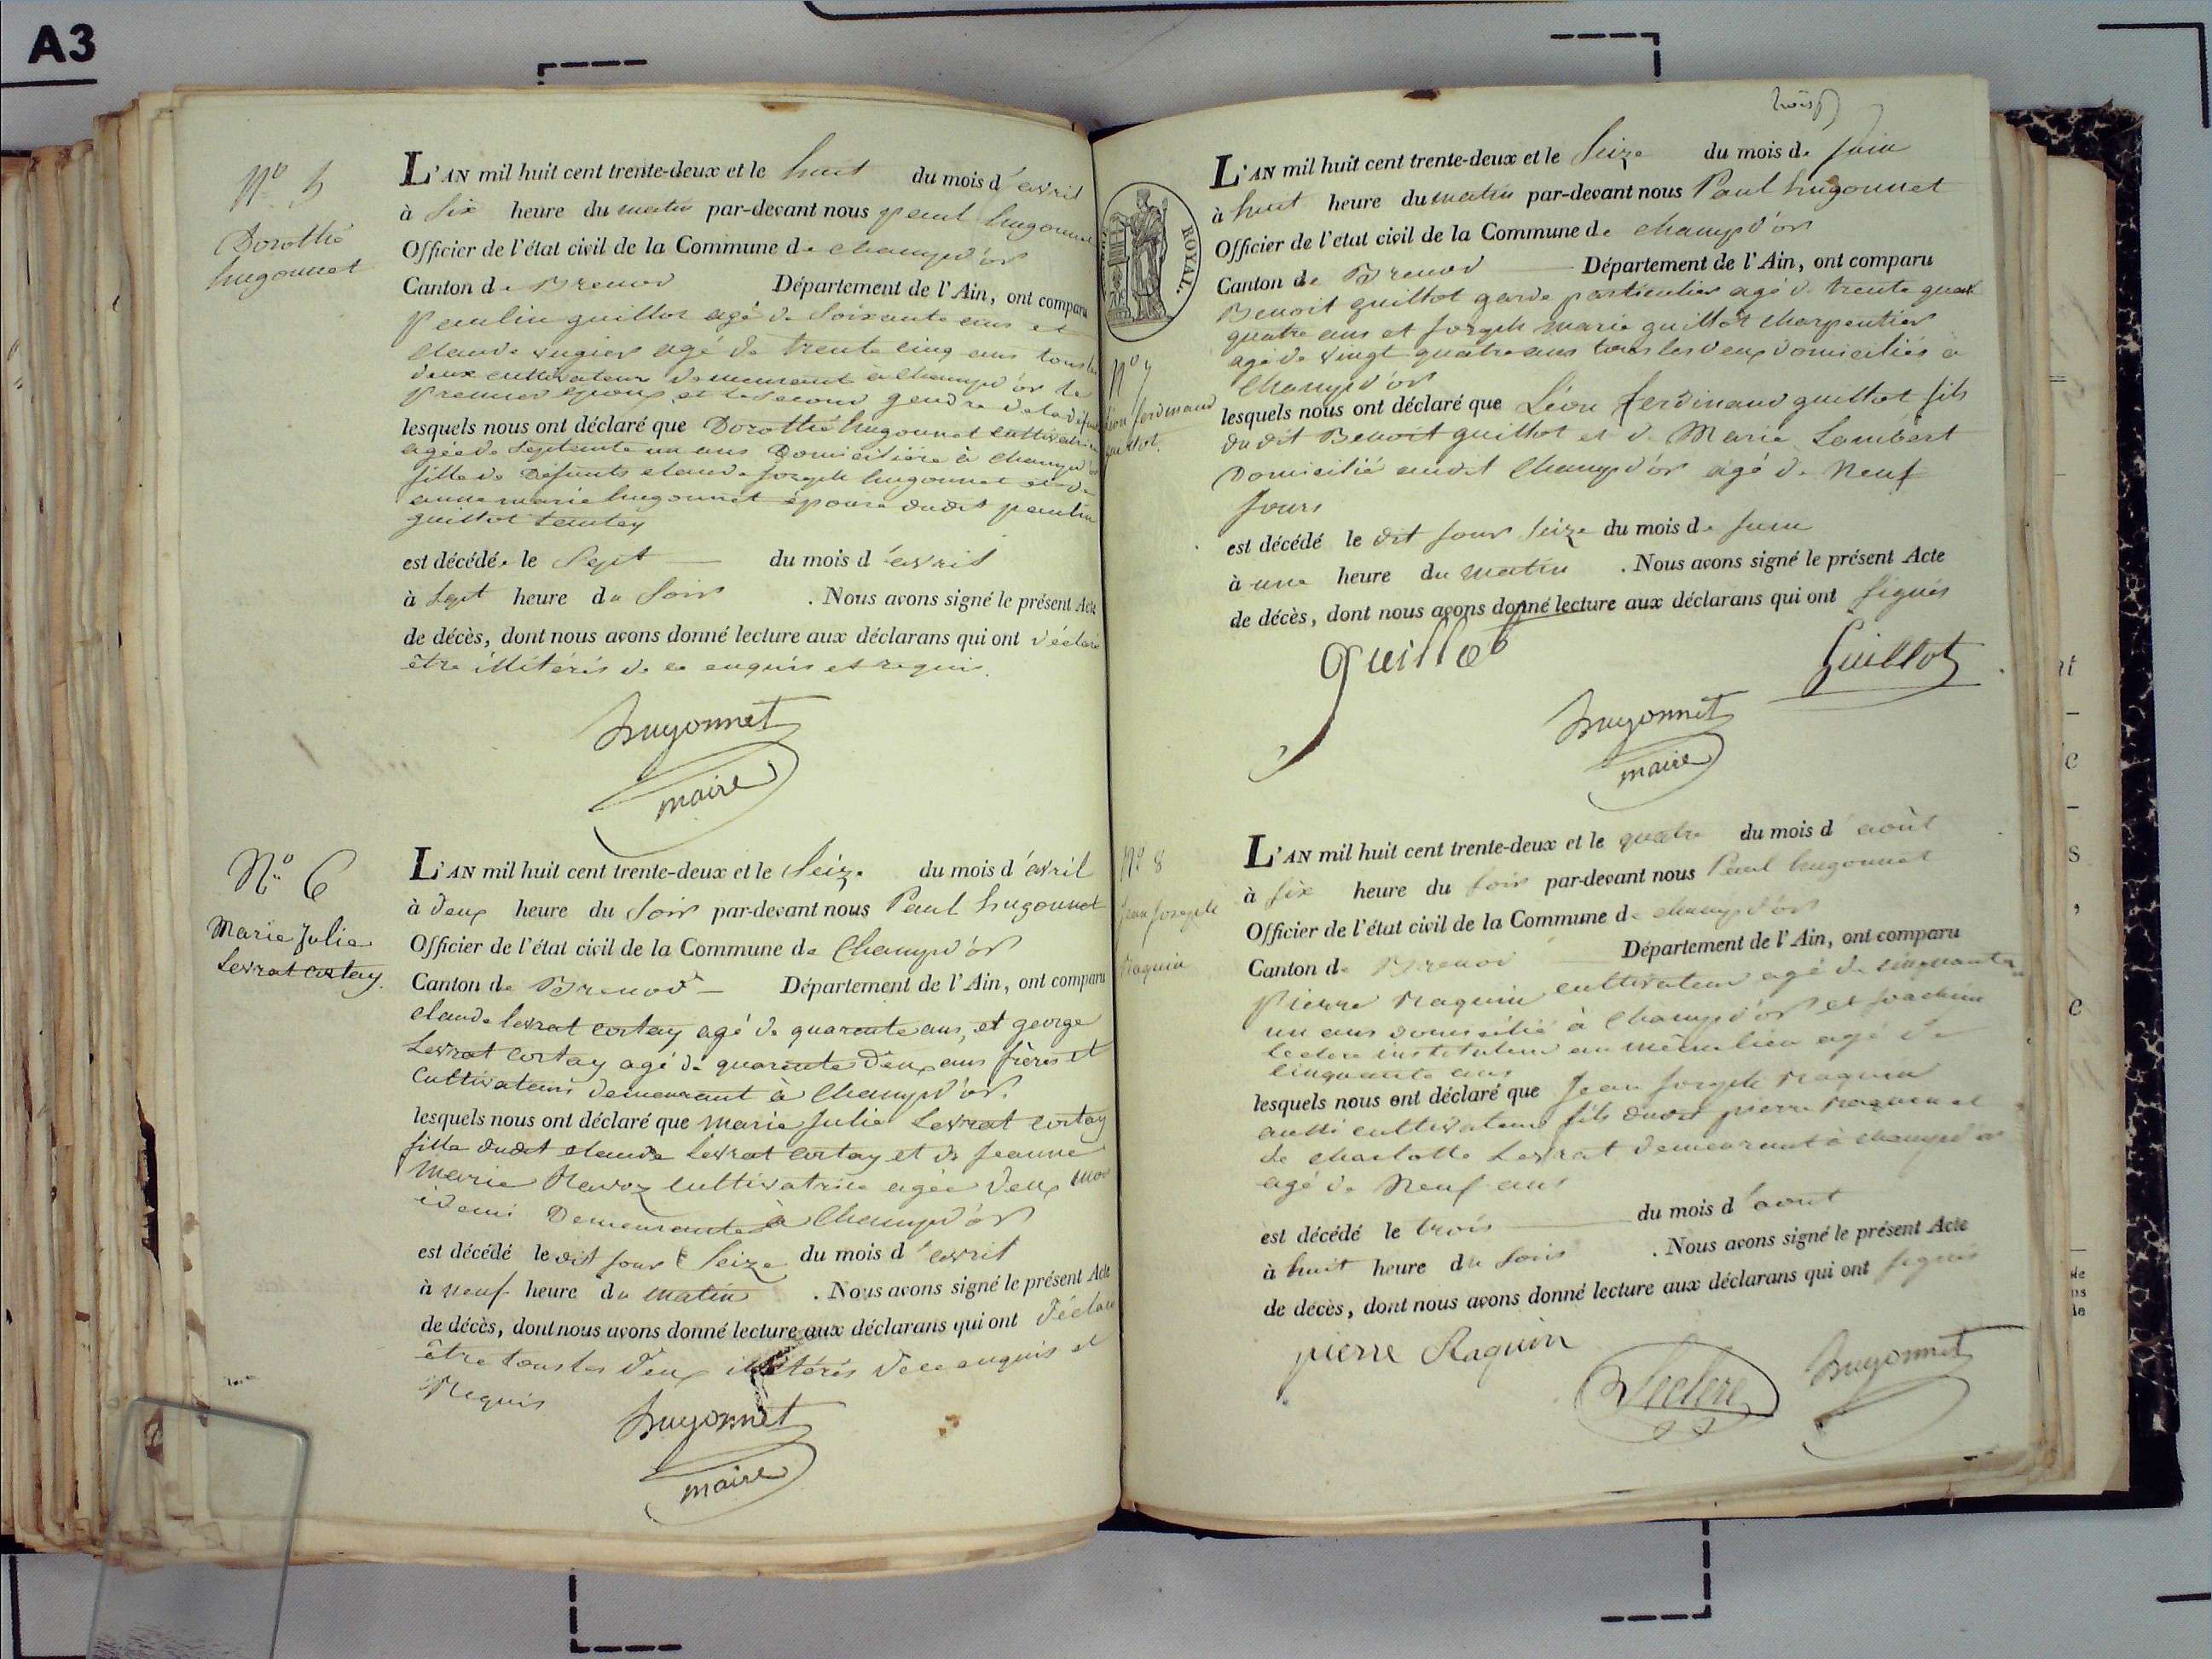 A3
N° 5
Dorothé
hugonnet
L'AN mil huit cent trente-deux et le huit du mois d'avril
à Six heure du matin par-devant nous paul hugonnet
Officier de l'état civil de la Commune de champd'or
Canton de Brenod Département de l'Ain, ont comparu
Paulin guillot agé de Soixante ans et
claude rugier agé de trente cinq ans tous les
deux cultivateur demeurant à Champd'or le
Premier époux et le Second gendre de la défunte
lesquels nous ont déclaré que Dorothé hugonnet cultivatrice
agée de Septante un ans Domiciliére à Champd'or
fille de Défunts claude Joseph hugonnet et de
anne marie hugonnet épouse dudit paulin
guillot
est décédé. le Sept du mois d'avril
à Sept heure du Soir . Nous avons signé le présent Acte
de décès, dont nous avons donné lecture aux déclarans qui ont déclaré
être illitérés de ce enquis et requis.
hugonnet
maire
N° 6
Marie Julie
Levrat cortay.
L'AN mil huit cent trente-deux et le Seize du mois d'avril
à deux heure du Soir par-devant nous Paul hugonnet
Officier de l'état civil de la Commune de Champd'or
Canton de Brenod Département de l'Ain, ont comparu
claude levrat cortay agé de quarante ans, et george
Levrat cortay agé de quarante Deux ans frères et
Cultivateurs demeurant à Champd'or.
lesquels nous ont déclaré que marie Julie Levrat cortay
fille dudit claude Levrat cortay et de Jeanne
Marie Ravoz cultivatrice agée deux mois
idemi Demeurante à Champd'or
est décédé le dit jour Seize du mois d'avril
à neuf heure du matin . Nous avons signé le présent Acte
de décès, dont nous avons donné lecture aux déclarans qui ont déclaré
être tous les deux illitérés de ce enquis et
Requis
hugonnet
maire
trois
ROYAL.
N° 7
Léon ferdinand
guillot.
L'AN mil huit cent trente-deux et le Seize du mois de Juin
à huit heure du matin par-devant nous Paul hugonnet
Officier de l'état civil de la Commune de champd'or
Canton de Brenod Département de l'Ain, ont comparu
Benoit guillot garde particulier agé de trente quat
quatre ans et Joseph marie guillot charpentier
agé de vingt quatre ans tous les deux domiciliés à
Champd'or
lesquels nous ont déclaré que Léon ferdinand guillot fils
du dit Benoit guillot et de Marie Lambert
Domicilié audit Champd'or agé de Neuf
Jours
est décédé le dit jour Seize du mois de Juin
à une heure du matin . Nous avons signé le présent Acte
de décès, dont nous avons donné lecture aux déclarans qui ont signés
guillot
Guillot
hugonnet
maire
N° 8
Jean Joseph
Raquin
L'AN mil huit cent trente-deux et le quatre du mois d'août
à Six heure du Soir par-devant nous Paul hugonnet
Officier de l'état civil de la Commune de champd'or
Canton de Brenod Département de l'Ain, ont comparu
Pierre Raquin cultivateur agé de cinquante
un ans domicilié à Champd'or et Joachim
leclere instituteur au même lieu agé de
Cinquante ans
lesquels nous ont déclaré que Jean Joseph Raquin
aussi cultivateur fils dudit pierre Raquin et
de charlotte Levrat demeurant à champd'or
agé de Neuf ans
est décédé le trois du mois d'aout
à huit heure du Soir . Nous avons signé le présent Acte
de décès, dont nous avons donné lecture aux déclarans qui ont signés
pierre Raquin
Leclere
hugonnet